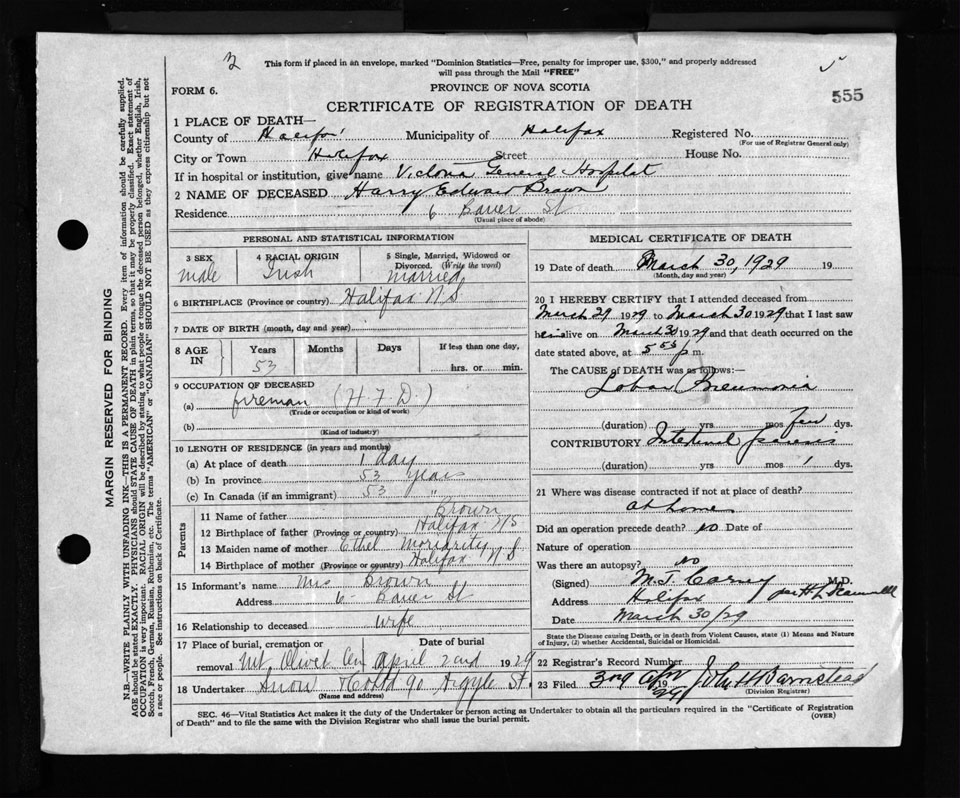 2
This form if placed in an envelope, marked "Dominion Statistics—Free, penalty for improper use, $300," and properly addressed
will pass through the Mail "FREE"
FORM 6.
PROVINCE OF NOVA SCOTIA
555
CERTIFICATE OF REGISTRATION OF DEATH
1 PLACE OF DEATH—
County of Halifax Municipality of Halifax Registered No.
(For use of Registrar General only)
City or Town Halifax Street House No.
If in hospital or institution, give name Victoria General Hospital
2 NAME OF DECEASED Harry Edward Brown
Residence 6 Bauer St
(Usual place of abode)
PERSONAL AND STATISTICAL INFORMATION
3 SEX 4 RACIAL ORIGIN 5 Single, Married, Widowed or
Divorced. (Write the word)
Male Irish Married
6 BIRTHPLACE (Province or country) Halifax N.S.
7 DATE OF BIRTH (month, day and year)
8 AGE IN Years Months Days If less than one day,
53 hrs. or min.
9 OCCUPATION OF DECEASED
(a) fireman (H F D.)
(Trade or occupation or kind of work)
(b)
(Kind of industry)
10 LENGTH OF RESIDENCE (in years and months)
(a) At place of death 1 day
(b) In province 53 years
(c) In Canada (if an immigrant) 53 "
Parents
11 Name of father Brown
12 Birthplace of father (Province or country) Halifax NS
13 Maiden name of mother Ethel Moriarity
14 Birthplace of mother (Province or country) Halifax N.S
15 Informant's name Mrs Brown
Address 6 Bauer St
16 Relationship to deceased wife
17 Place of burial, cremation or Date of burial
removal Mt. Olivet Cem April 2nd 1929
18 Undertaker Snow & Co Ltd 90 Argyle St.
(Name and address)
MEDICAL CERTIFICATE OF DEATH
19 Date of death March 30, 1929 19
(Month, day and year)
20 I HEREBY CERTIFY that I attended deceased from
March 29 1929 to March 30 1929 that I last saw
him alive on March 30 1929 and that death occurred on the
date stated above, at 5 55 p m.
The CAUSE of DEATH was as follows:—
Lobar Pneumonia
(duration) yrs mos few dys.
CONTRIBUTORY Intestinal paresis
(duration) yrs mos 1 dys.
21 Where was disease contracted if not at place of death?
at home
Did an operation precede death? No Date of
Nature of operation
Was there an autopsy? No
(Signed) M. J. Carney M.D.
Address Halifax
Date March 30/29
State the Disease causing Death, or in death from Violent Causes, state (1) Means and Nature
of Injury, (2) whether Accidental, Suicidal or Homicidal.
22 Registrar's Record Number
23 Filed 3rd Apr 1929 John H Barnstead
(Division Registrar)
SEC. 46—Vital Statistics Act makes it the duty of the Undertaker or person acting as Undertaker to obtain all the particulars required in the "Certificate of Registration
of Death" and to file the same with the Division Registrar who shall issue the burial permit.
(OVER)
MARGIN RESERVED FOR BINDING
N.B.—WRITE PLAINLY WITH UNFADING INK—THIS IS A PERMANENT RECORD. Every item of information should be carefully supplied.
AGE should be stated EXACTLY. PHYSICIANS should STATE CAUSE OF DEATH in plain terms, so that it may be properly classified. Exact statement of
OCCUPATION is very important. RACIAL ORIGIN will be described by stating to what people or tongue the deceased person belonged, whether English, Irish,
Scotch, French, German, Russian, Ruthenian, etc. The terms "AMERICAN" or "CANADIAN" SHOULD NOT BE USED as they express citizenship but not
a race or people. See instructions on back of Certificate.